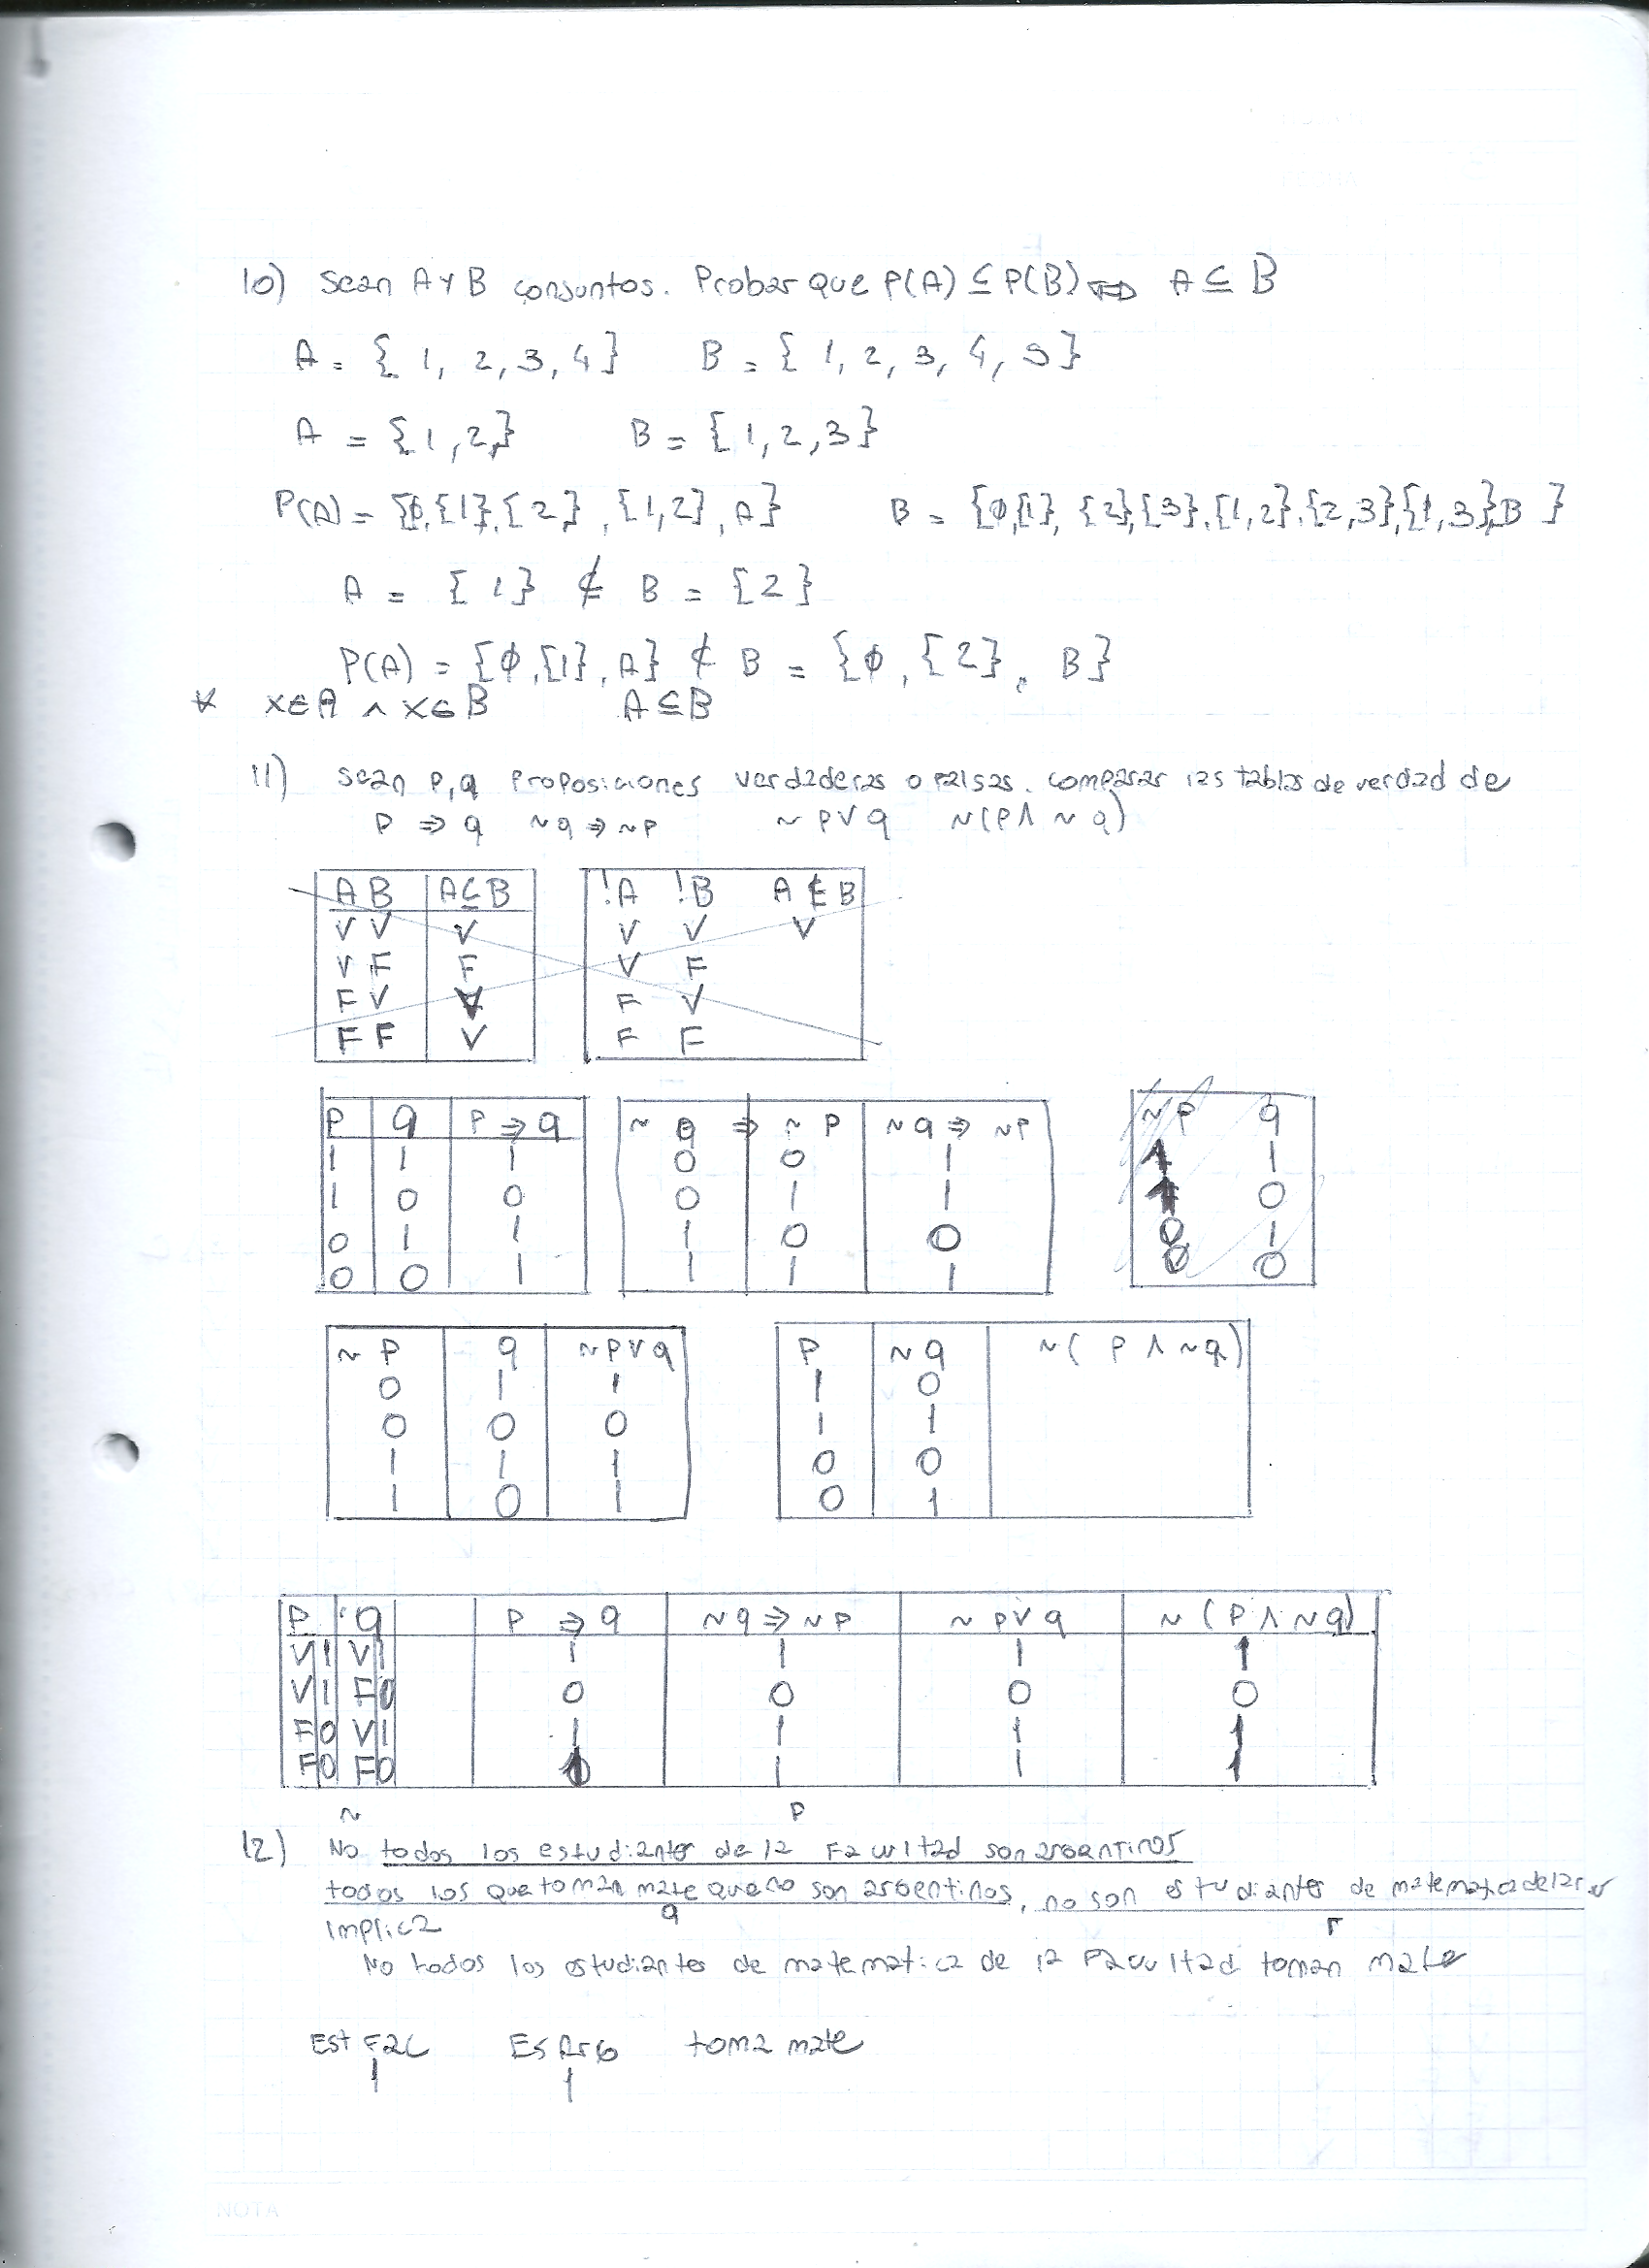 10) Sean A y B conjuntos. Probar que P(A) ⊆ P(B) ⟺ A ⊆ B
A = { 1, 2, 3, 4 } B = { 1, 2, 3, 4, 5 }
A = {1,2,} B = {1,2,3}
P(A) = {∅,{1},{2}, {1,2}, A} B = {∅,{1}, {2},{3},{1,2},{2,3},{1,3},B }
A = {1} ⊄ B = {2}
P(A) = {∅,{1}, A} ⊄ B = {∅, {2}, B}
∀ x∈A ∧ x∈B A⊆B
11) Sean p,q proposiciones verdaderas o falsas. comparar las tablas de verdad de
p ⇒ q ~q ⇒ ~p ~p∨q ~(p∧~q)
A B A⊆B !A !B A⊈B
V V V V V V
V F F V F
F V F V
F F V F F
P q P ⇒ q ~ q ⇒ ~ P ~q ⇒ ~P ~P q
1 1 1 0 0 1 1
1 0 0 0 1 1 0
0 1 1 1 0 0 0 1
0 0 1 1 1 1 0 0
~ P q ~P∨q P ~q ~( P ∧ ~q)
0 1 1 1 0
0 0 0 1 1
1 1 1 0 0
1 0 1 0 1
P q P ⇒ q ~q ⇒ ~P ~ P∨q ~ (P ∧ ~q)
V1 V1 1 1 1 1
V1 F0 0 0 0 0
F0 V1 1 1 1 1
F0 F0 1 1 1 1
~ P
12) No todos los estudiantes de la Facultad son argentinos
todos los que toman mate que no son argentinos, no son estudiantes de matematica de la
q r
implica
No todos los estudiantes de matematica de la Facultad toman mate
Est Fac Es Arg toma mate
1 1
NOTA